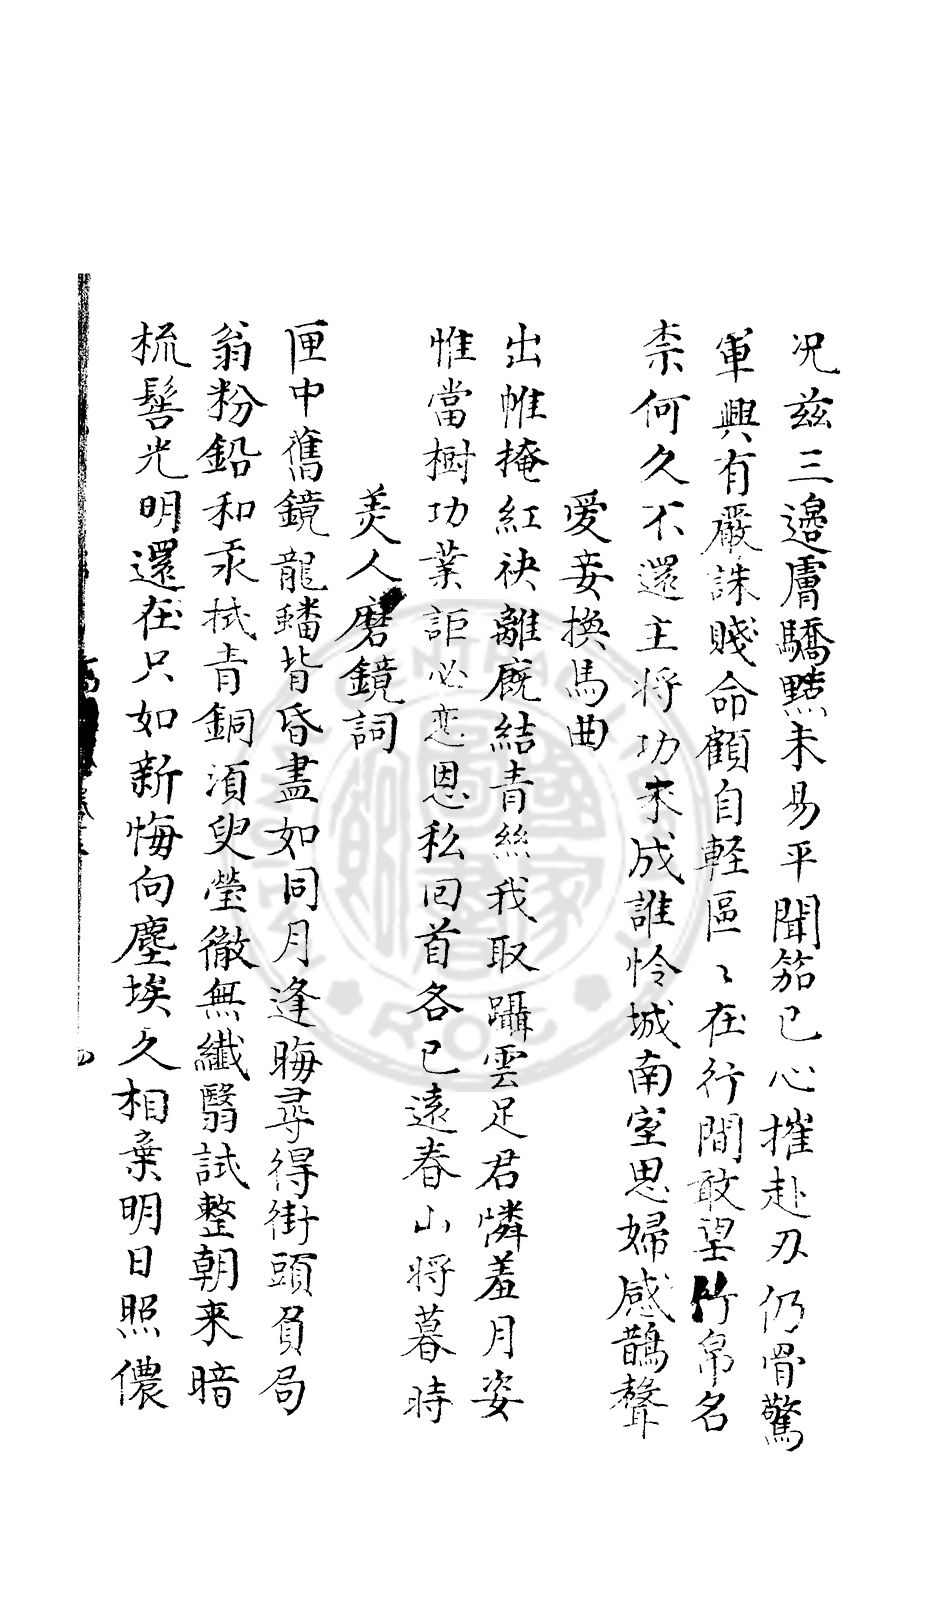 况茲三邊膚驕黠未易平聞笳已心摧赴刃仍骨驚
軍興有嚴誅賤命顧自軽區〻在行間敢望竹帛名
柰何久不還主将功未成誰怜城南室思婦感鵲聲
愛妾換馬曲
出帷掩紅袂離廐結青絲我取躡雲足君憐羞月姿
惟當樹功業詎必恋恩私回首各已遠春山将暮時
美人磨鏡詞
匣中舊鏡龍蟠背昏盡如同月逢晦尋得街頭負局
翁粉鉛和汞拭青銅湏臾瑩徹無纖翳試整朝来暗
梳髻光明還在只如新悔向塵埃久相棄明日照儂